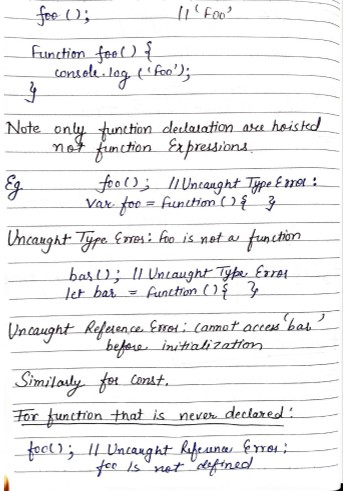 foo(); // 'Foo'
Function foo() {
console.log ('Foo');
}
Note only function declaration are hoisted
not function Expressions.
Eg foo(); // Uncaught Type Error:
Var foo = Function () { }
Uncaught Type Error: foo is not a function
bar(); // Uncaught Type Error
let bar = Function () { }
Uncaught Reference Error: Cannot access 'bar'
before initialization
Similarly for Const.
For function that is never declared:
foo(); // Uncaught Reference Error:
foo is not defined